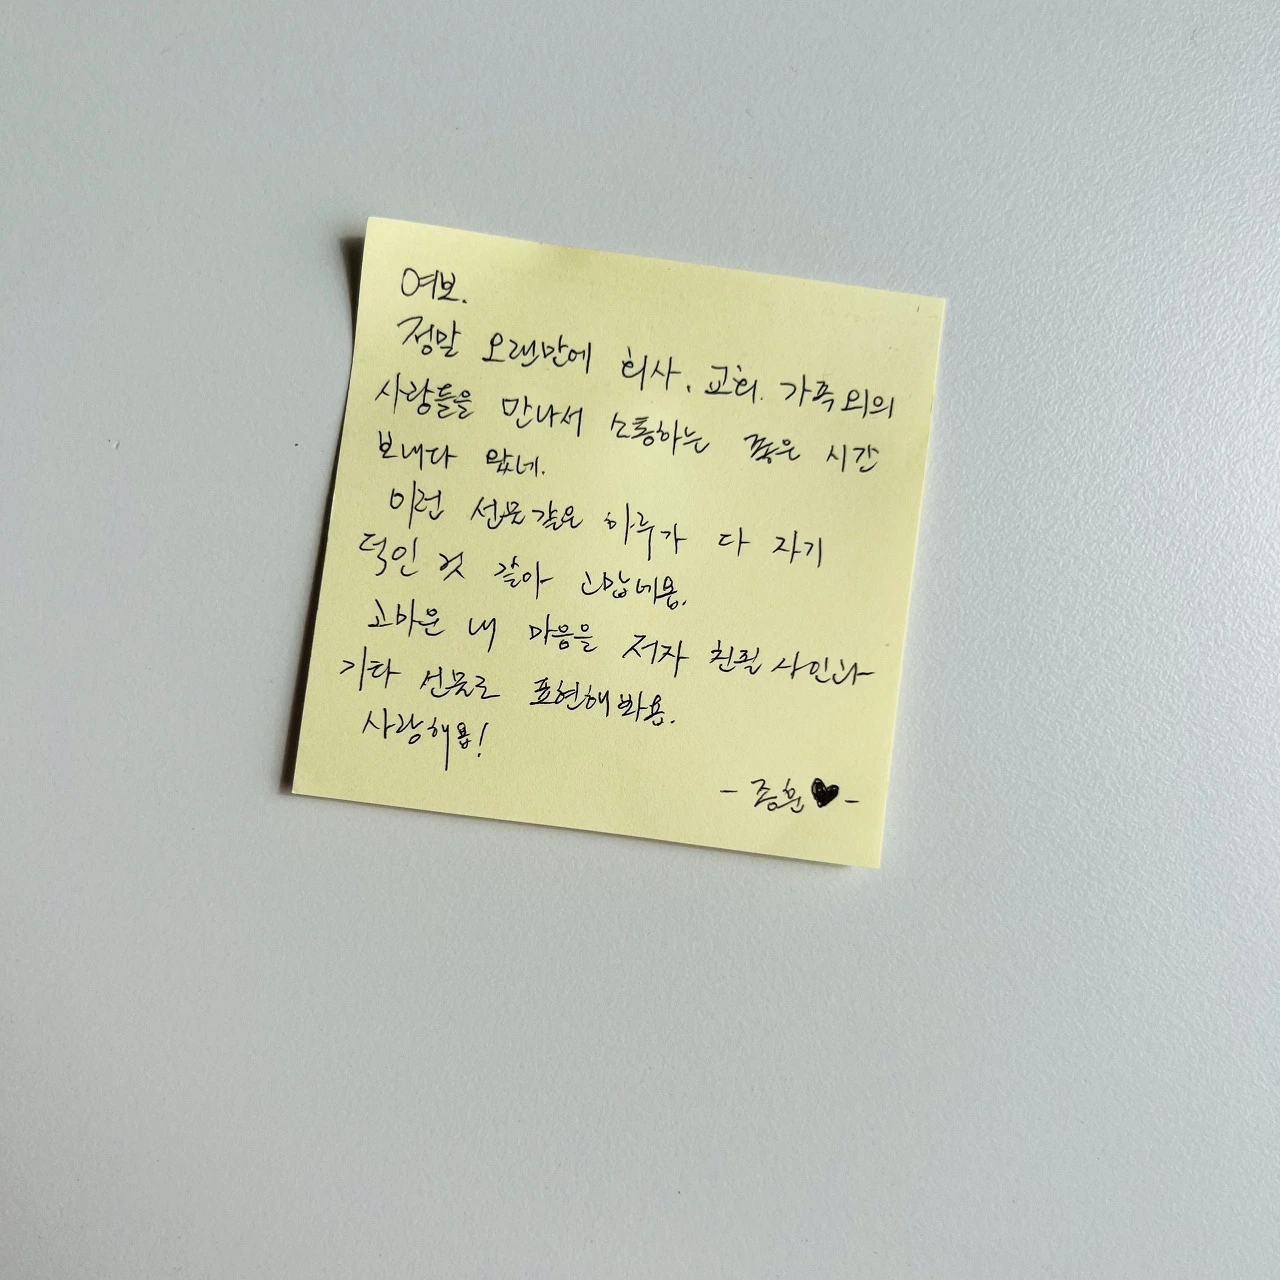 여보.
정말 오랜만에 회사, 교회, 가족 외의
사람들을 만나서 소통하는 좋은 시간
보내다 왔네.
이런 선물같은 하루가 다 자기
덕인 것 같아 고맙네용.
고마운 내 마음을 저자 친필 사인과
기타 선물로 표현해봐용.
사랑해용!
- 종훈♥-